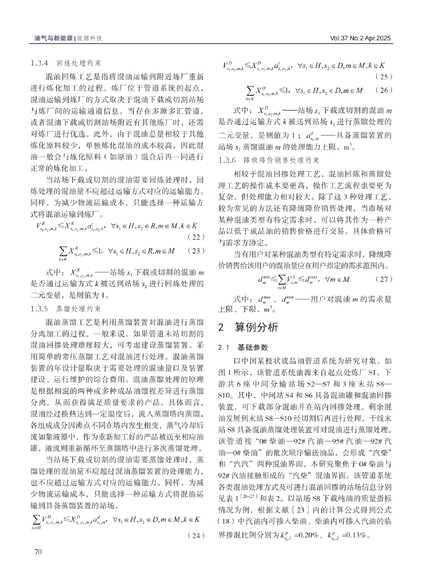 油气与新能源 | 能源科技
Vol.37 No.2 Apr.2025
1.3.4 回炼处理约束
混油回炼工艺是指将混油运输到附近炼厂重新
进行炼化加工的过程。炼厂位于管道系统的起点，
混油运输到炼厂的方式取决于混油下载或切割站场
与炼厂间的运输通道信息。当存在多源多汇管道，
或者混油下载或切割站场附近有其他炼厂时，还需
对炼厂进行优选。此外，由于混油总量相较于其他
炼化原料较少，单独炼化混油的成本较高，因此混
油一般会与炼化原料（如原油）混合后再一同进行
正常的炼化加工。
当站场下载或切割的混油需要回炼处理时，回
炼处理的混油量不应超过运输方式对应的运输能力。
同样，为减少物流运输成本，只能选择一种运输方
式将混油运输到炼厂。
（22）
（23）
式中：——站场 s₁ 下载或切割的混油 m
是否通过运输方式 k 被送到站场 s₂ 进行回炼处理的
二元变量，是则值为 1。
1.3.5 蒸馏处理约束
混油蒸馏工艺是利用蒸馏装置对混油进行蒸馏
分离加工的过程。一般来说，如果管道末站切割的
混油回掺处理难度较大，可考虑建设蒸馏装置，采
用简单的常压蒸馏工艺对混油进行处理。混油蒸馏
装置的年设计量取决于需要处理的混油量以及装置
建设、运行维护的综合费用。混油蒸馏处理的原理
是根据组混的两种或多种成品油馏程差异进行蒸馏
分离，从而获得满足质量要求的产品。具体而言，
混油经过换热达到一定温度后，流入蒸馏塔内蒸馏，
各组成成分因沸点不同在塔内发生相变，蒸气冷却后
流如集液器中，作为重新加工好的产品被送至相应油
罐，液流则重新循环至蒸馏塔中进行多次蒸馏处理。
当站场下载或切割的混油需要蒸馏处理时，蒸
馏处理的混油量不应超过混油蒸馏装置的处理能力，
也不应超过运输方式对应的运输能力。同样，为减
少物流运输成本，只能选择一种运输方式将混油运
输到具备蒸馏装置的站场。
（24）
70
（25）
（26）
式中：——站场 s₁ 下载或切割的混油 m
是否通过运输方式 k 被送到站场 s₂ 进行蒸馏处理的
二元变量，是则值为 1；——具备蒸馏装置的
站场 s₂ 蒸馏混油 m 的处理能力上限，m³。
1.3.6 降级降价销售处理约束
相较于混油回掺处理工艺，混油回炼和蒸馏处
理工艺的操作成本要更高，操作工艺流程也要更为
复杂，但处理能力相对较大。除了这 3 种处理工艺，
较为常见的方法还有降级降价销售处理，当市场对
某种混油类型有特定需求时，可以将其作为一种产
品以低于成品油的销售价格进行交易，具体价格可
与需求方协定。
当有用户对某种混油类型有特定需求时，降级降
价销售给该用户的混油量应在用户指定的需求范围内。
（27）
式中：——用户对混油 m 的需求量
上限、下限，m³。
2 算例分析
2.1 基础参数
以中国某枝状成品油管道系统为研究对象。如
图 1 所示，该管道系统油源来自起点处炼厂 S1，下
游共 6 座中间分输站场 S2—S7 和 3 座末站 S8—
S10。其中，中间站 S4 和 S6 具备混油罐和混油回掺
装置，可下载部分混油并在站内回掺处理，剩余混
油发展到末站 S8—S10 经切割后再进行处理。干线末
站 S8 具备混油蒸馏处理装置可对混油进行蒸馏处理。
该管道按“0# 柴油—92# 汽油—95# 汽油—92# 汽
油—0# 柴油”的批次顺序输送油品，会形成“汽柴”
和“汽汽”两种混油界面，本研究聚焦于 0# 柴油与
92# 汽油接触形成的“汽柴”混油界面。该管道系统
各类混油处理方式及可进行混油回掺的站场信息分别
见表 1[26-27]和表 2。以站场 S8 下载纯油的质量指标
情况为例，根据文献［23］内的计算公式得到公式
（18）中汽油内可掺入柴油、柴油内可掺入汽油的临
界掺混比例分别为 =0.20%、=0.13%。